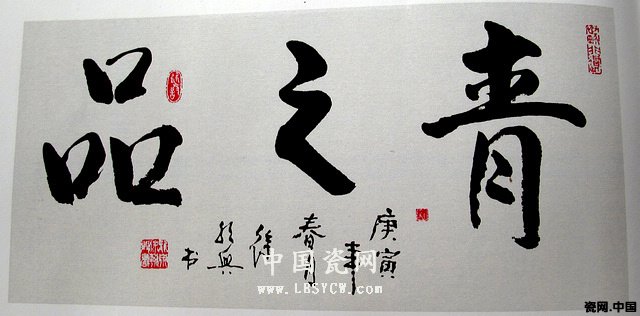 青之品
庚寅
年
春月
书
中国瓷网
www.LBSYCW.com
瓷网.中国